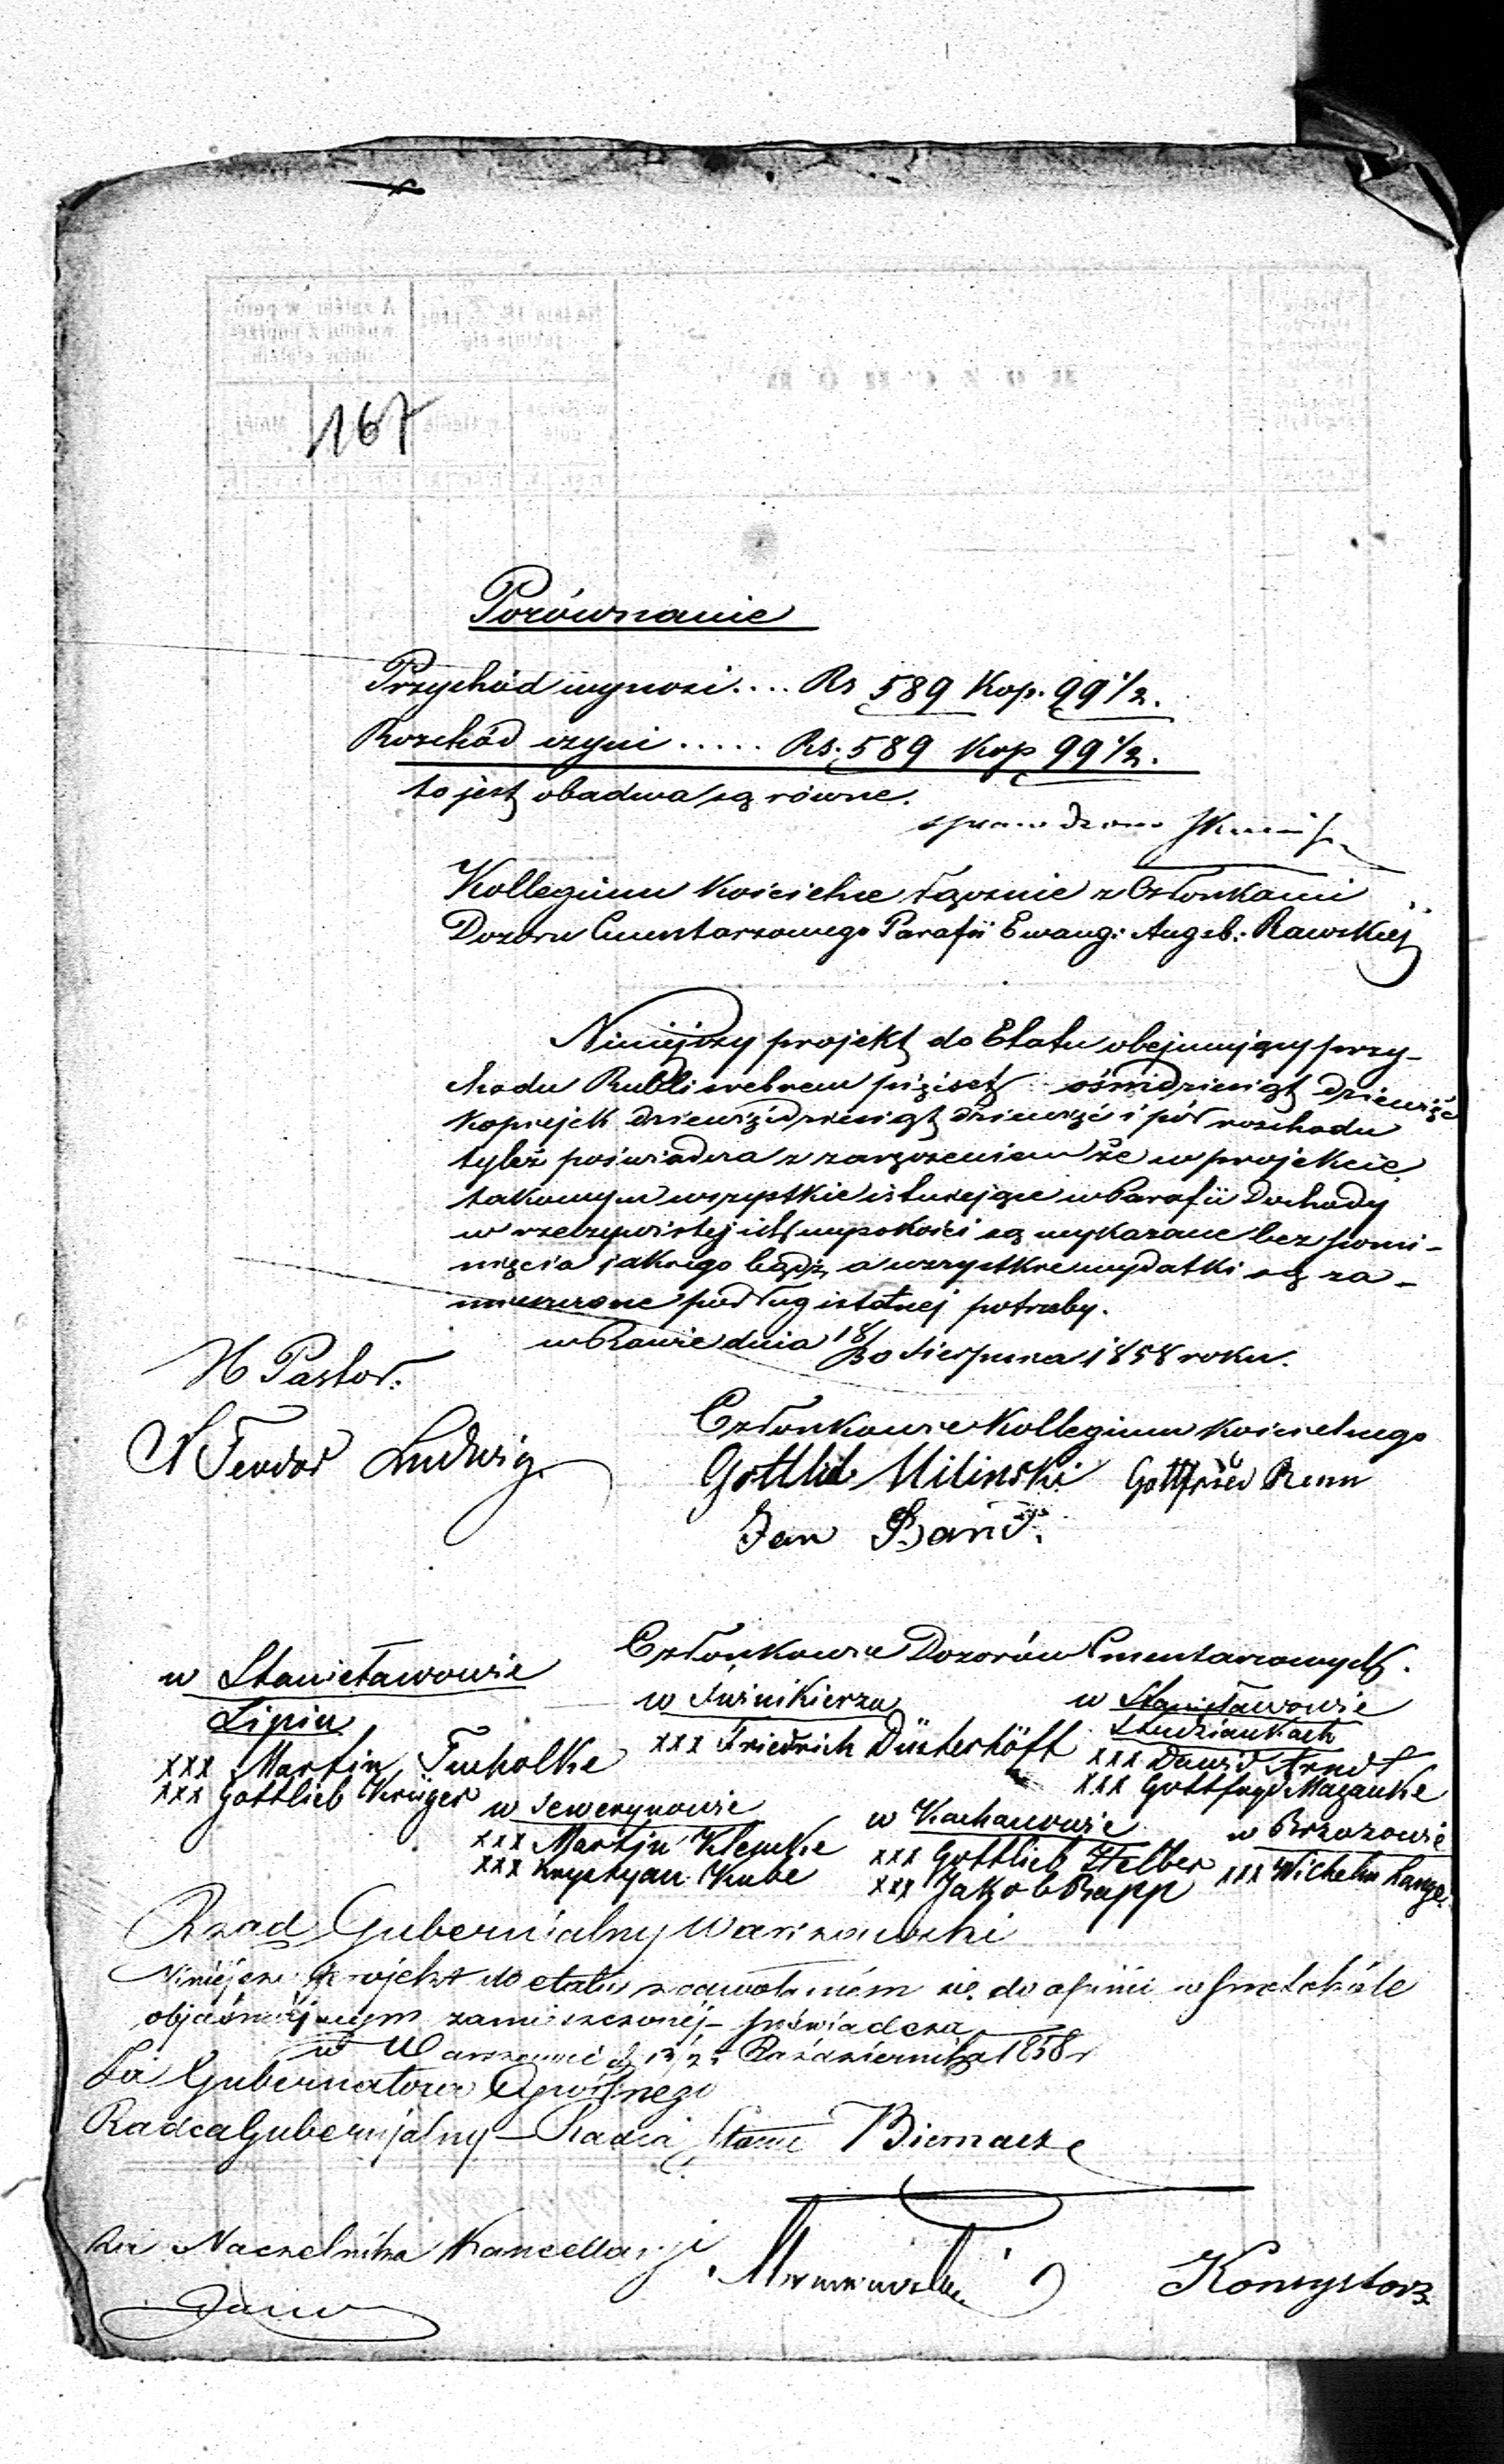 167
Porównanie
Przychód wynosi.... Rs 589 Kop. 99 1/2.
Rozchód czyni ..... Rs. 589 Kop 99 1/2.
to jest obadwa są równe.
sprawdzono
Kollegium Kościelne łącznie z Członkami
Dozoru Cmentarzowego Parafii Ewang: Augsb: Rawskiej
Niniejszy projekt do Etatu obejmujący przy-
chodu Rubli srebrem pięćset ośmdziesiąt dziewięć
kopiejek dziewięćdziesiąt dziewięć i pół rozchodu
tyleż poświadcza z zaręczeniem że w projekcie
takowym wszystkie istniejące w Parafii dochody
w rzeczywistej ich wysokości są wykazane bez pomi-
nięcia jakiego bądź, a wszystkie wydatki są za-
mieszczone podług istotnej potrzeby.
w Rawie dnia 18/30 Sierpnia 1858 roku.
Pastor.
Teodor Ludwig
Członkowie Kollegium Kościelnego
Gottlib Milinski Gottfried Renn
Jan
Członkowie Dozorów Cmentarzowych.
w Stanisławowie
Lipin
xxx Martin Tucholke
xxx Gottlieb Krüger
w
xxx Friedrich Düsterhöft
w Stanisławowie
Studziankach
xxx Dawid Arndt
xxx Gottfryd Maganke
w Sewerynowie
xxx Martin Klemke
xxx Krystyan Kube
w Kochanowie
xxx Gottlieb Helber
xxx Jakob Rapp
w Brzozowie
xxx Wilhelm Lange
Rząd Gubernialny Warszawski
Niniejszy projekt do etatu z odwołaniem się do opinii w protokóle
objaśniającym zamieszczonéj poświadcza
w Warszawie d. Października 1858 r
Za Gubernatora Cywilnego
Radca Gubernjalny - Radca Stanu Biernacki
Naczelnika Kancellaryi
Konsystorz